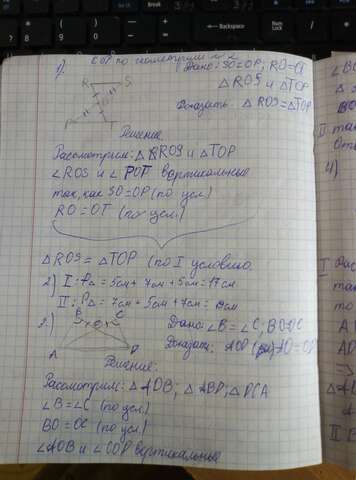 СОР по геометрии №2
1). Дано: SO=OP; RO=OT
△ROS и △TOP
R S
O
Доказать △ROS=△TOP
P T
Решение
Рассмотрим: △ROS и △TOP
∠ROS и ∠POT вертикальные
так, как SO=OP (по усл)
RO=OT (по усл.)
△ROS = △TOP (по I условию
2) I: P△ = 5см + 7см + 5см = 17см
II: P△ = 7см + 5см + 7см = 19см
3.) B O C Дано: ∠B=∠C; BO=OC
Доказать: AO=OD
A D
Решение:
Рассмотрим: △AOB; △ABD; △DCA
∠B=∠C (по усл)
BO=OC (по усл)
∠AOB и ∠COD вертикальные
4)
Backspace
Home